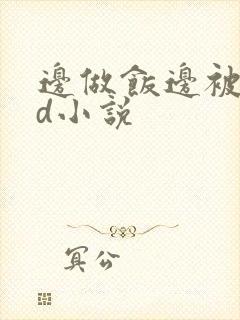 邊做飯邊被
d小說
冥公